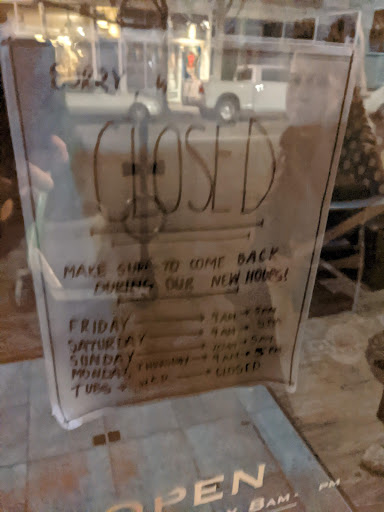 SORRY
CLOSED
MAKE SURE TO COME BACK
DURING OUR NEW HOURS!
FRIDAY 9AM → 5PM
SATURDAY 9AM → 5PM
SUNDAY
MONDAY THURSDAY → 9AM → 5PM
TUES + WED → CLOSED
OPEN
8AM - PM